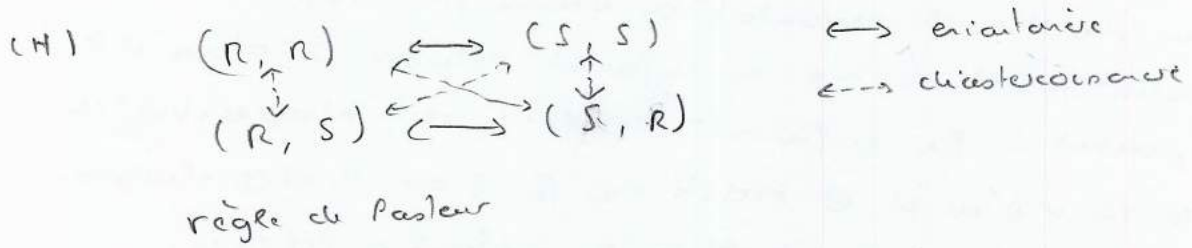 (H) (R, R) ⟷ (S, S) ⟷ énantiomère
⇠⇢ diastéréoisomère
(R, S) ⟷ (S, R)
règle de Pasteur